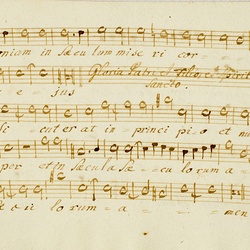 oniam in sæculum mise ri cor
e - jus Gloria Patri et Filio, et Spiri
sancto.
Si - cut erat in prin ci pi o et nu
per et in sæcula sæ - cu lorum a -
lo rum - a - - men